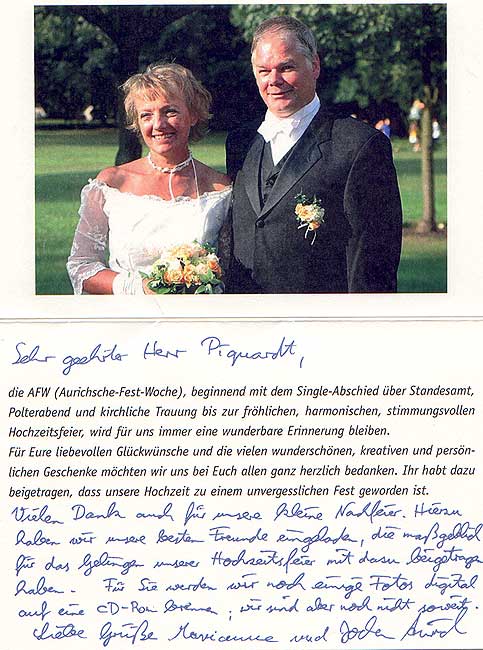 Sehr geehrter Herr Piquardt,
die AFW (Aurichsche-Fest-Woche), beginnend mit dem Single-Abschied über Standesamt,
Polterabend und kirchliche Trauung bis zur fröhlichen, harmonischen, stimmungsvollen
Hochzeitsfeier, wird für uns immer eine wunderbare Erinnerung bleiben.
Für Eure liebevollen Glückwünsche und die vielen wunderschönen, kreativen und persön-
lichen Geschenke möchten wir uns bei Euch allen ganz herzlich bedanken. Ihr habt dazu
beigetragen, dass unsere Hochzeit zu einem unvergesslichen Fest geworden ist.
Vielen Dank auch für unsere kleine Nachfeier. Hierzu
haben wir unsere besten Freunde eingeladen, die maßgeblich
für das Gelingen unserer Hochzeitsfeier mit dazu beigetragen
haben. Für Sie werden wir noch einige Fotos digital
auf eine CD-Rom brennen, wir sind aber noch nicht soweit.
Liebe Grüße Marianne und Jochen Aurich